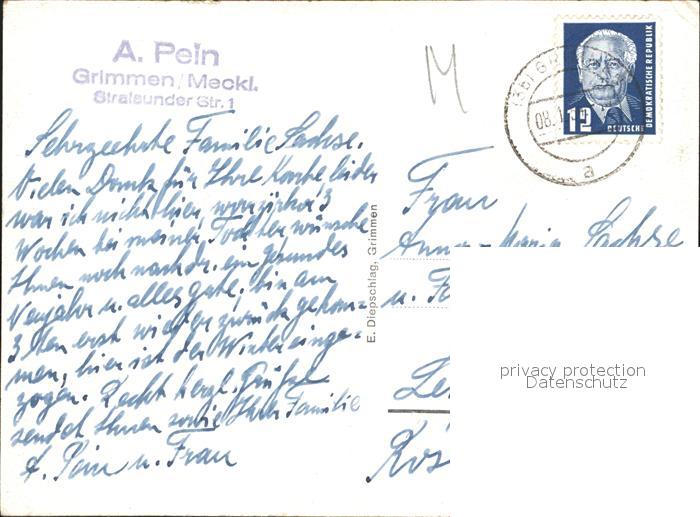 A. Pein
Grimmen/Meckl.
Stralsunder Str. 1
M
(3b) GR
08.1
a
12
DEUTSCHE
DEMOKRATISCHE REPUBLIK
Sehrgeehrte Familie Sachse.
Vielen Dank für Ihre Karte leider
war ich nicht hier, war 3
Wochen bei meiner Tochter wünsche
Ihnen noch nachdr. ein gesundes
Neujahr u. alles gute, bin am
3ten erst wieder zurück gekom=
men, hier ist der Winter einge=
zogen. Recht herzl. Grüße
sendet Ihnen sowie Ihrer Familie
A. Pein u. Frau
E. Diepschlag, Grimmen
Frau
Anna-Maria Sachse
u. F
Le
Rös
privacy protection
Datenschutz